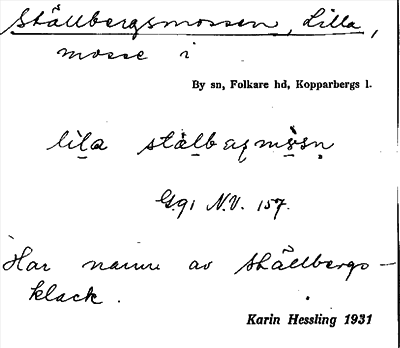 Skållbergsmossen, Lilla,
mosse i
By sn, Folkare hd, Kopparbergs l.
lila
N.V. 157.
Har namn av Skållbergs-
klack.
Karin Hessling 1931